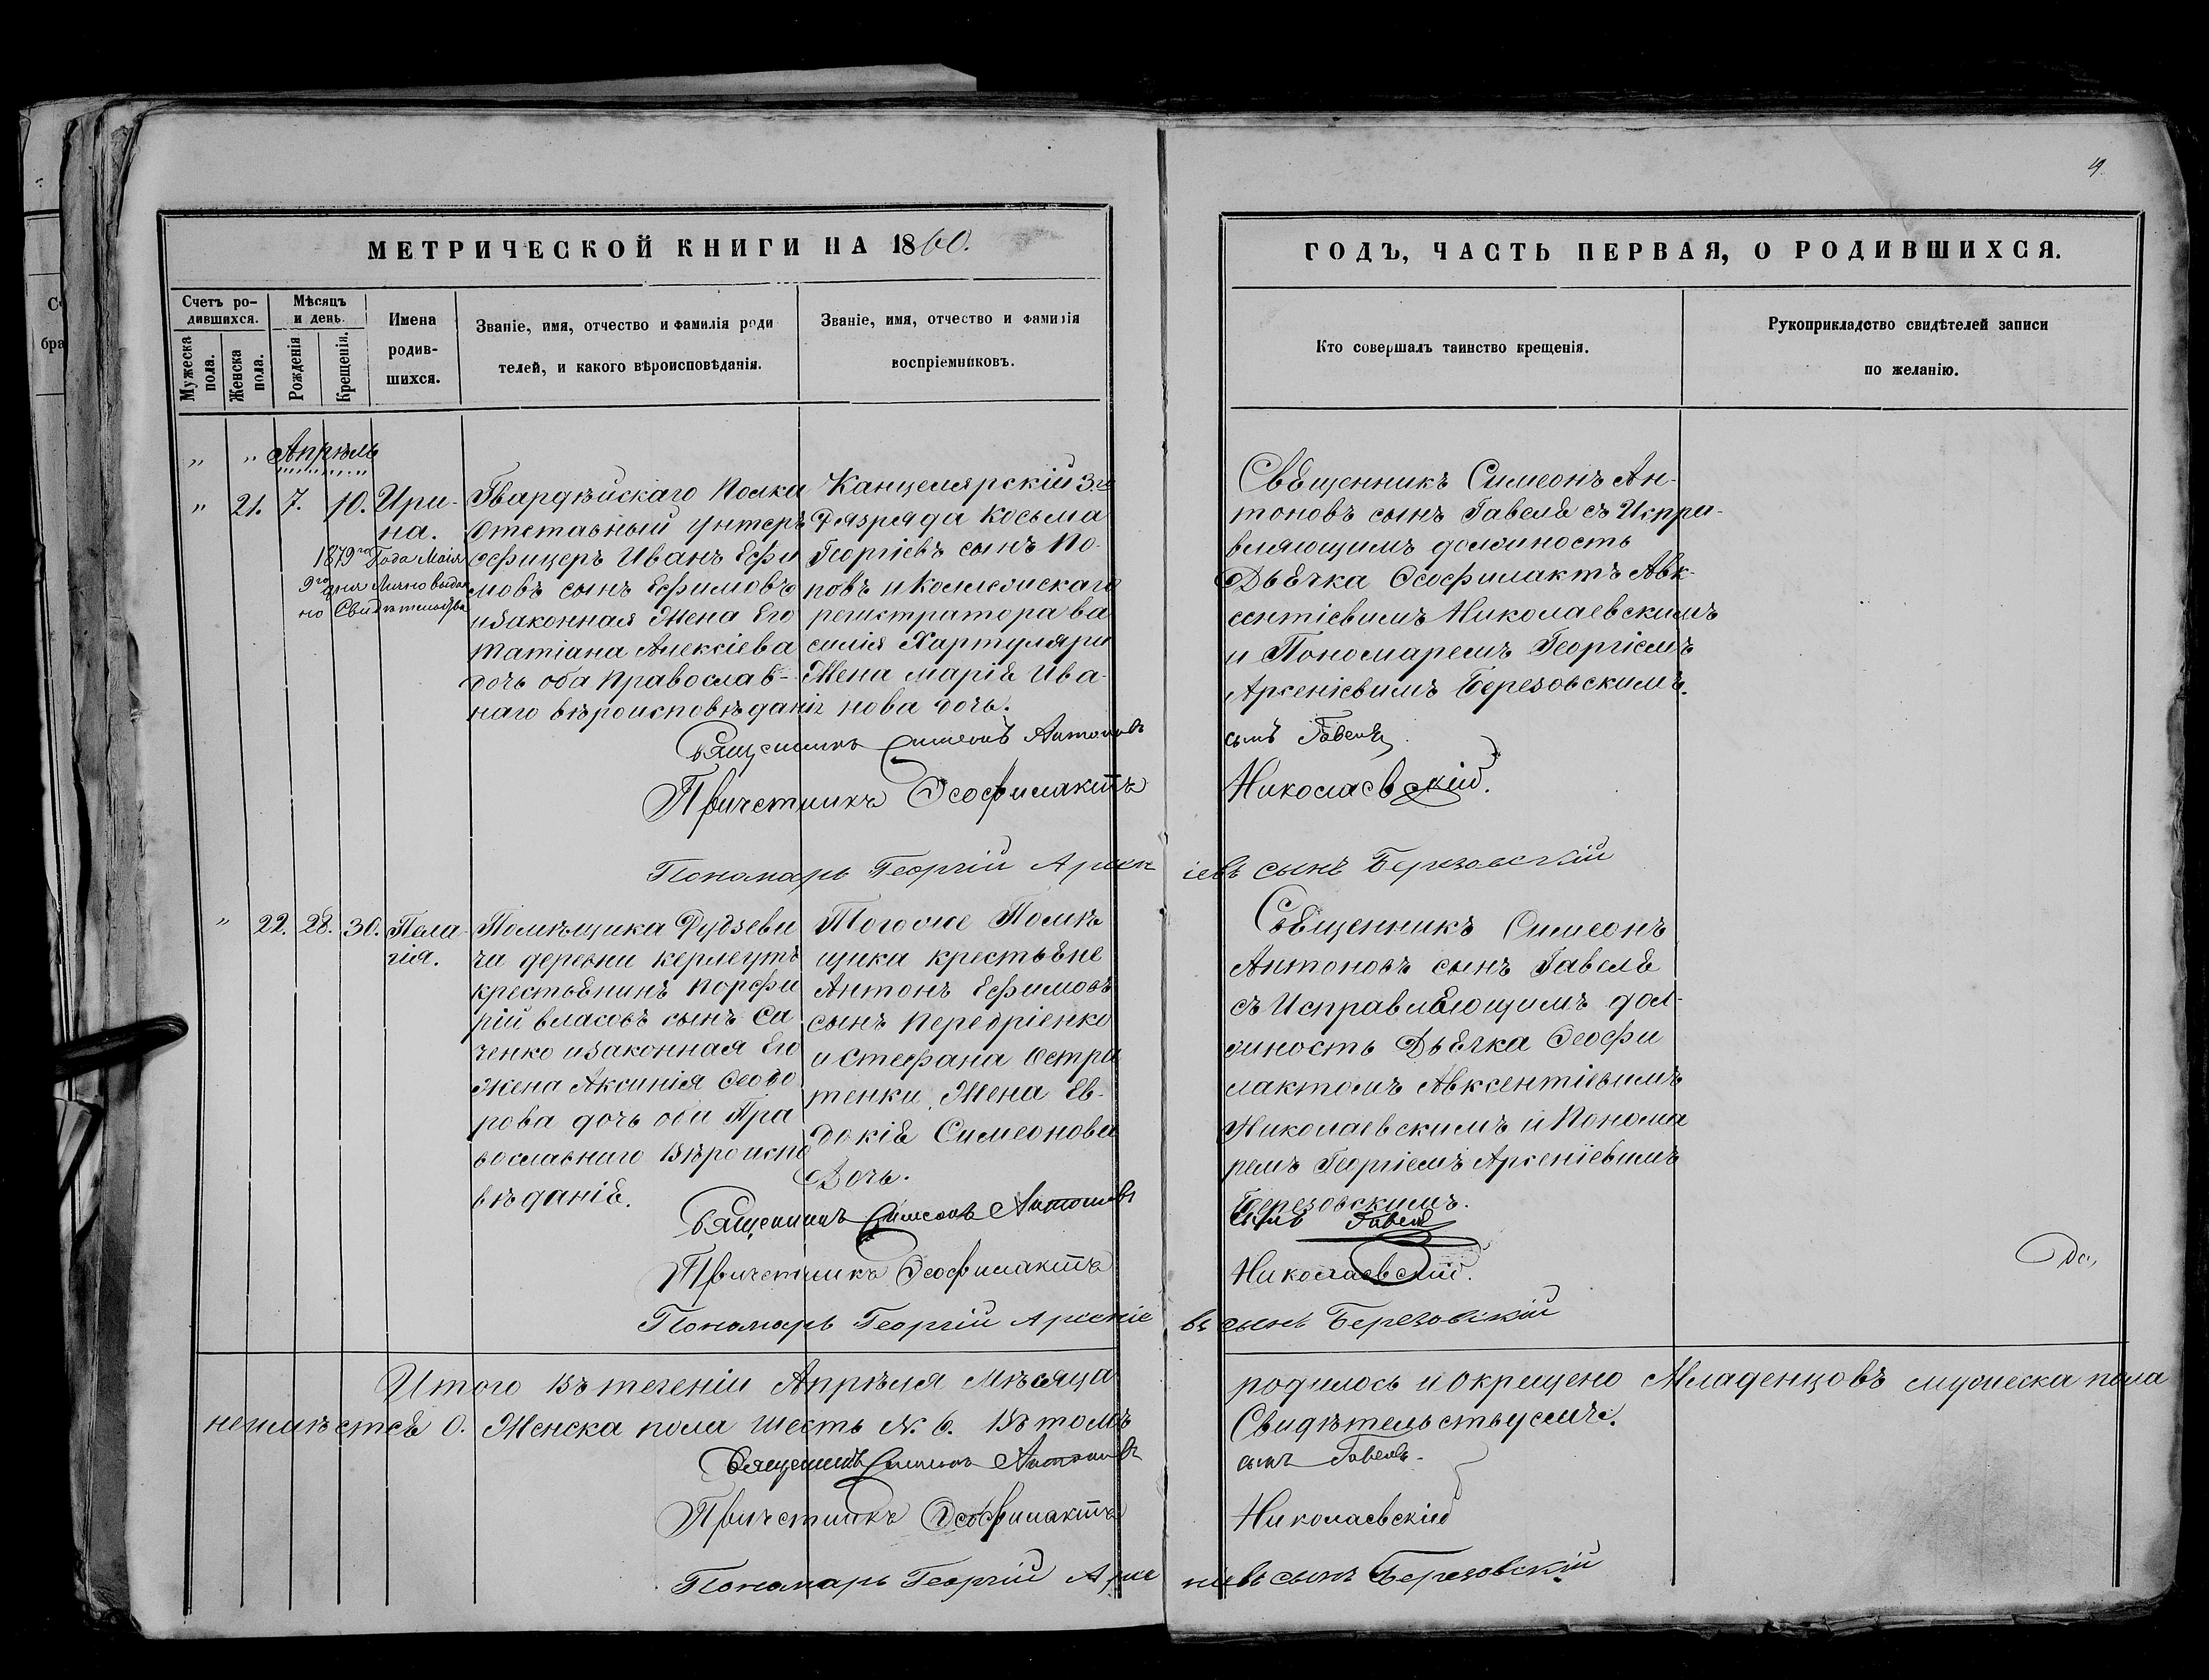 4.
МЕТРИЧЕСКОЙ КНИГИ НА 1860.
ГОДЪ, ЧАСТЬ ПЕРВАЯ, О РОДИВШИХСЯ.
Счетъ ро-
дившихся.
Мужеска пола.
Женска пола.
Мѣсяцъ
и день.
Рожденія
Крещенія.
Имена
родив-
шихся.
Званіе, имя, отчество и фамилія роди
телей, и какого вѣроисповѣданія.
Званіе, имя, отчество и фамилія
воспріемниковъ.
Кто совершалъ таинство крещенія.
Рукоприкладство свидѣтелей записи
по желанію.
„ „ Апрѣль
„ 21. 7. 10. Ири-
на.
1879го Года Маія
9го дня Лично выдан
но Свидѣтельство
Гвардѣйскаго Полка
Отставный унтеръ
офицеръ Иванъ Ефи
мовъ сынъ Ефимовъ
и законная Жена Его
Татіана Алексіева
дочь оба Православ-
наго вѣроисповѣданія
Канцелярскій 3го
Разряда Косьма
Георгіевъ сынъ По-
повъ и Коллежскаго
регистратора Ва
силія Хартуляри
Жена Марія Ива-
нова дочь.
Священникъ Симеонъ Ан-
тоновъ сынъ Гавель съ Испра-
вляющимъ должность
Дьячка Ѳеофилактъ Авк-
сентіевимъ Николаевскимъ
и Пономаремъ Георгіемъ
Арсеніевимъ Березовскимъ.
Священникъ Симеонъ Антоновъ сынъ Гавель
Причетникъ Ѳеофилактъ Николаевскій.
Пономарь Георгій Арсеніевъ сынъ Березовскій
„ 22. 28. 30. Пела-
гія.
Помѣщика Дудзеви
ча деревни Керлеутъ
крестьянинъ Порфи
рій Власовъ сынъ Са
ченко и законная Его
Жена Аксинія Ѳеодо
рова дочь оби Пра
вославнаго Вѣроиспо
вѣданія.
Тогоже Помѣ
щика крестьяне
Антонъ Ефимовъ
сынъ Передріенко
и Стефана Остра
тенки Жена Ев-
докія Симеонова
Дочь.
Священникъ Симеонъ
Антоновъ сынъ Гавель
съ Исправляющимъ дол-
жность Дьячка Ѳеофи
лактомъ Авксентіевимъ
Николаевскимъ и Понома
ремъ Георгіемъ Арсеніевимъ
Березовскимъ.
Священникъ Симеонъ Антоновъ сынъ Гавель
Причетникъ Ѳеофилактъ Николаевскій.
Пономарь Георгій Арсеніевъ сынъ Березовскій
Итого Въ теченіи Апрѣля Мѣсяца родилось и окрещено Младенцовъ мужеска пола
не имѣется 0. Женска пола шесть №. 6. Въ томъ Свидѣтельствуемъ.
Священникъ Симеонъ Антоновъ сынъ Гавель.
Причетникъ Ѳеофилактъ Николаевскій
Пономарь Георгій Арсеніевъ сынъ Березовскій